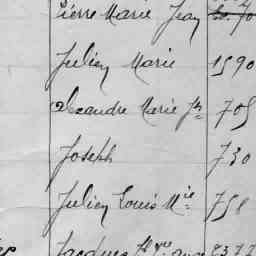 Pierre Marie Jean
Julien Marie 1590
Alexandre Marie Jn 705
Joseph 730
Julien Louis Mie 758
Jacques